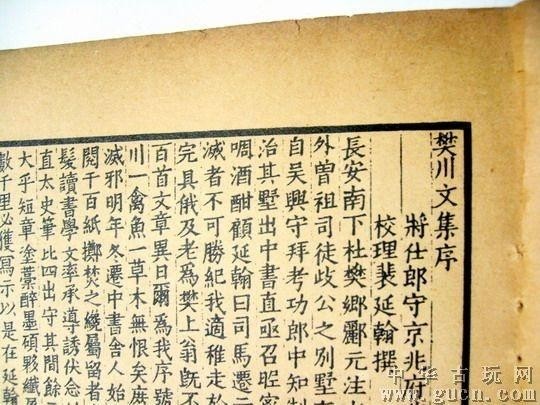 樊川文集序
將仕郎守京兆府
校理裴延翰撰
長安南下杜樊鄉酈元注水
外曾祖司徒歧公之别墅在
自吳興守拜考功郎中知制
治其墅出中書直亟召昵密
啁酒酣顧延翰曰司馬遷云
滅者不可勝紀我適稚走於
完具俄及老爲樊上翁旣不
百首文章異日爾爲我序號
川一禽魚一草木無恨矣庶
滅邪明年冬遷中書舍人始
閱千百紙擲焚之纔屬留者
髮讀書學文率承導誘伏念
直太史筆比四出守其間餘
大乎短章塗藁醉墨碩夥纖
數千里必獲寫示以是在延翰
中华古玩网
www.gucn.com